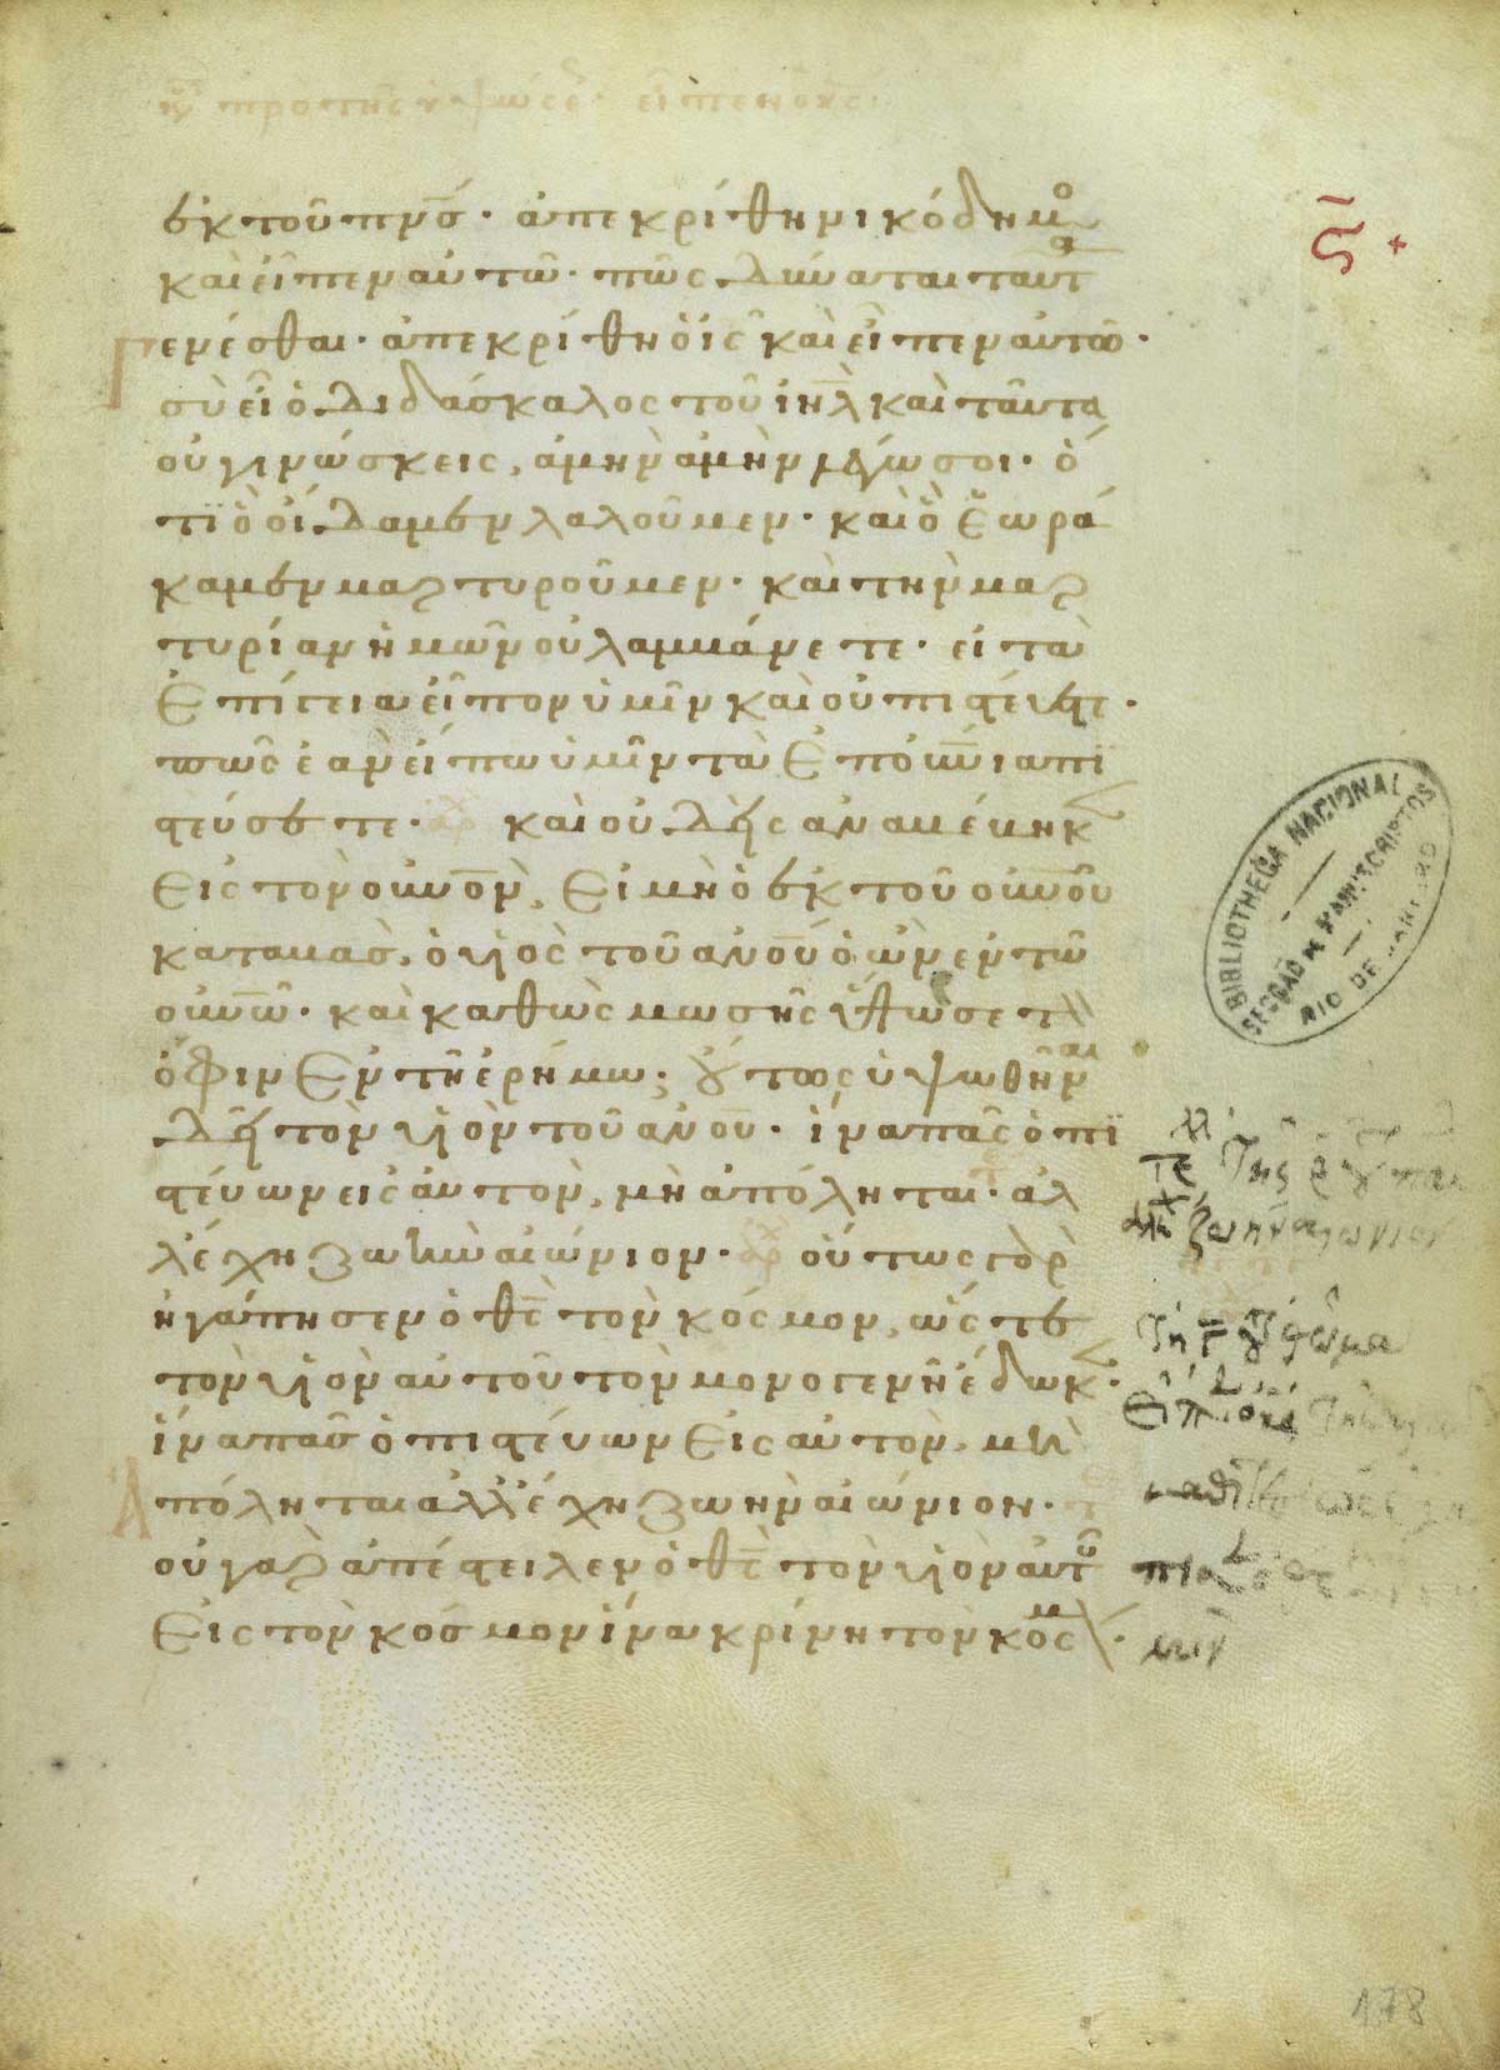 ἐκ τοῦ πνς· ἀπεκρίθη νικόδημο
καὶ εἶπεν αὐτῶ· πῶς δύναται ταῦτα
γενέσθαι· ἀπεκρίθη ὁ ις καὶ εἶπεν αὐτῶ·
σὺ εἶ ὁ διδάσκαλος τοῦ ιηλ καὶ ταῦτα
οὐ γινώσκεις, ἀμὴν ἀμὴν λέγω σοι· ὅ
τι ὃ οἴδαμεν λαλοῦμεν· καὶ ὃ ἑωρά
καμεν μαρτυροῦμεν· καὶ τὴν μαρ
τυρίαν ἡμῶν οὐ λαμβάνετε· εἰ τὰ
ἐπίγεια εἶπον ὑμῖν καὶ οὐ πιστεύετε·
πῶς ἐὰν εἴπω ὑμῖν τὰ ἐπουνια πι
στεύσετε· καὶ οὐδεὶς ἀναβέβηκ
εἰς τὸν οὐνον, εἰ μὴ ὁ ἐκ τοῦ οὐνου
καταβάς, ὁ υἱὸς τοῦ ανου ὁ ὢν ἐν τῶ
οὐνω· καὶ καθὼς μωσῆς ὕψωσε τὸν
ὄφιν ἐν τῆ ἐρήμω· οὕτως ὑψωθῆναι
δεῖ τὸν υἱὸν τοῦ ανου· ἵνα πᾶς ὁ πι
στεύων εἰς αὐτὸν, μὴ ἀπόληται· ἀλ
λ' ἔχη ζωὴν αἰώνιον· οὕτως γὰρ
ἠγάπησεν ὁ θς τὸν κόσμον, ὥστε
τὸν υἱὸν αὐτοῦ τὸν μονογενῆ ἔδωκ·
ἵνα πᾶς ὁ πιστεύων εἰς αὐτὸν, μὴ ἀ
πόληται ἀλλ' ἔχη ζωὴν αἰώνιον·
οὐ γὰρ ἀπέστειλεν ὁ θς τὸν υἱὸν αὐτοῦ
εἰς τὸν κόσμον ἵνα κρίνη τὸν κόσμον·
ς +
BIBLIOTHECA NACIONAL
SECÇÃO DE MANUSCRIPTOS
RIO DE JANEIRO
178